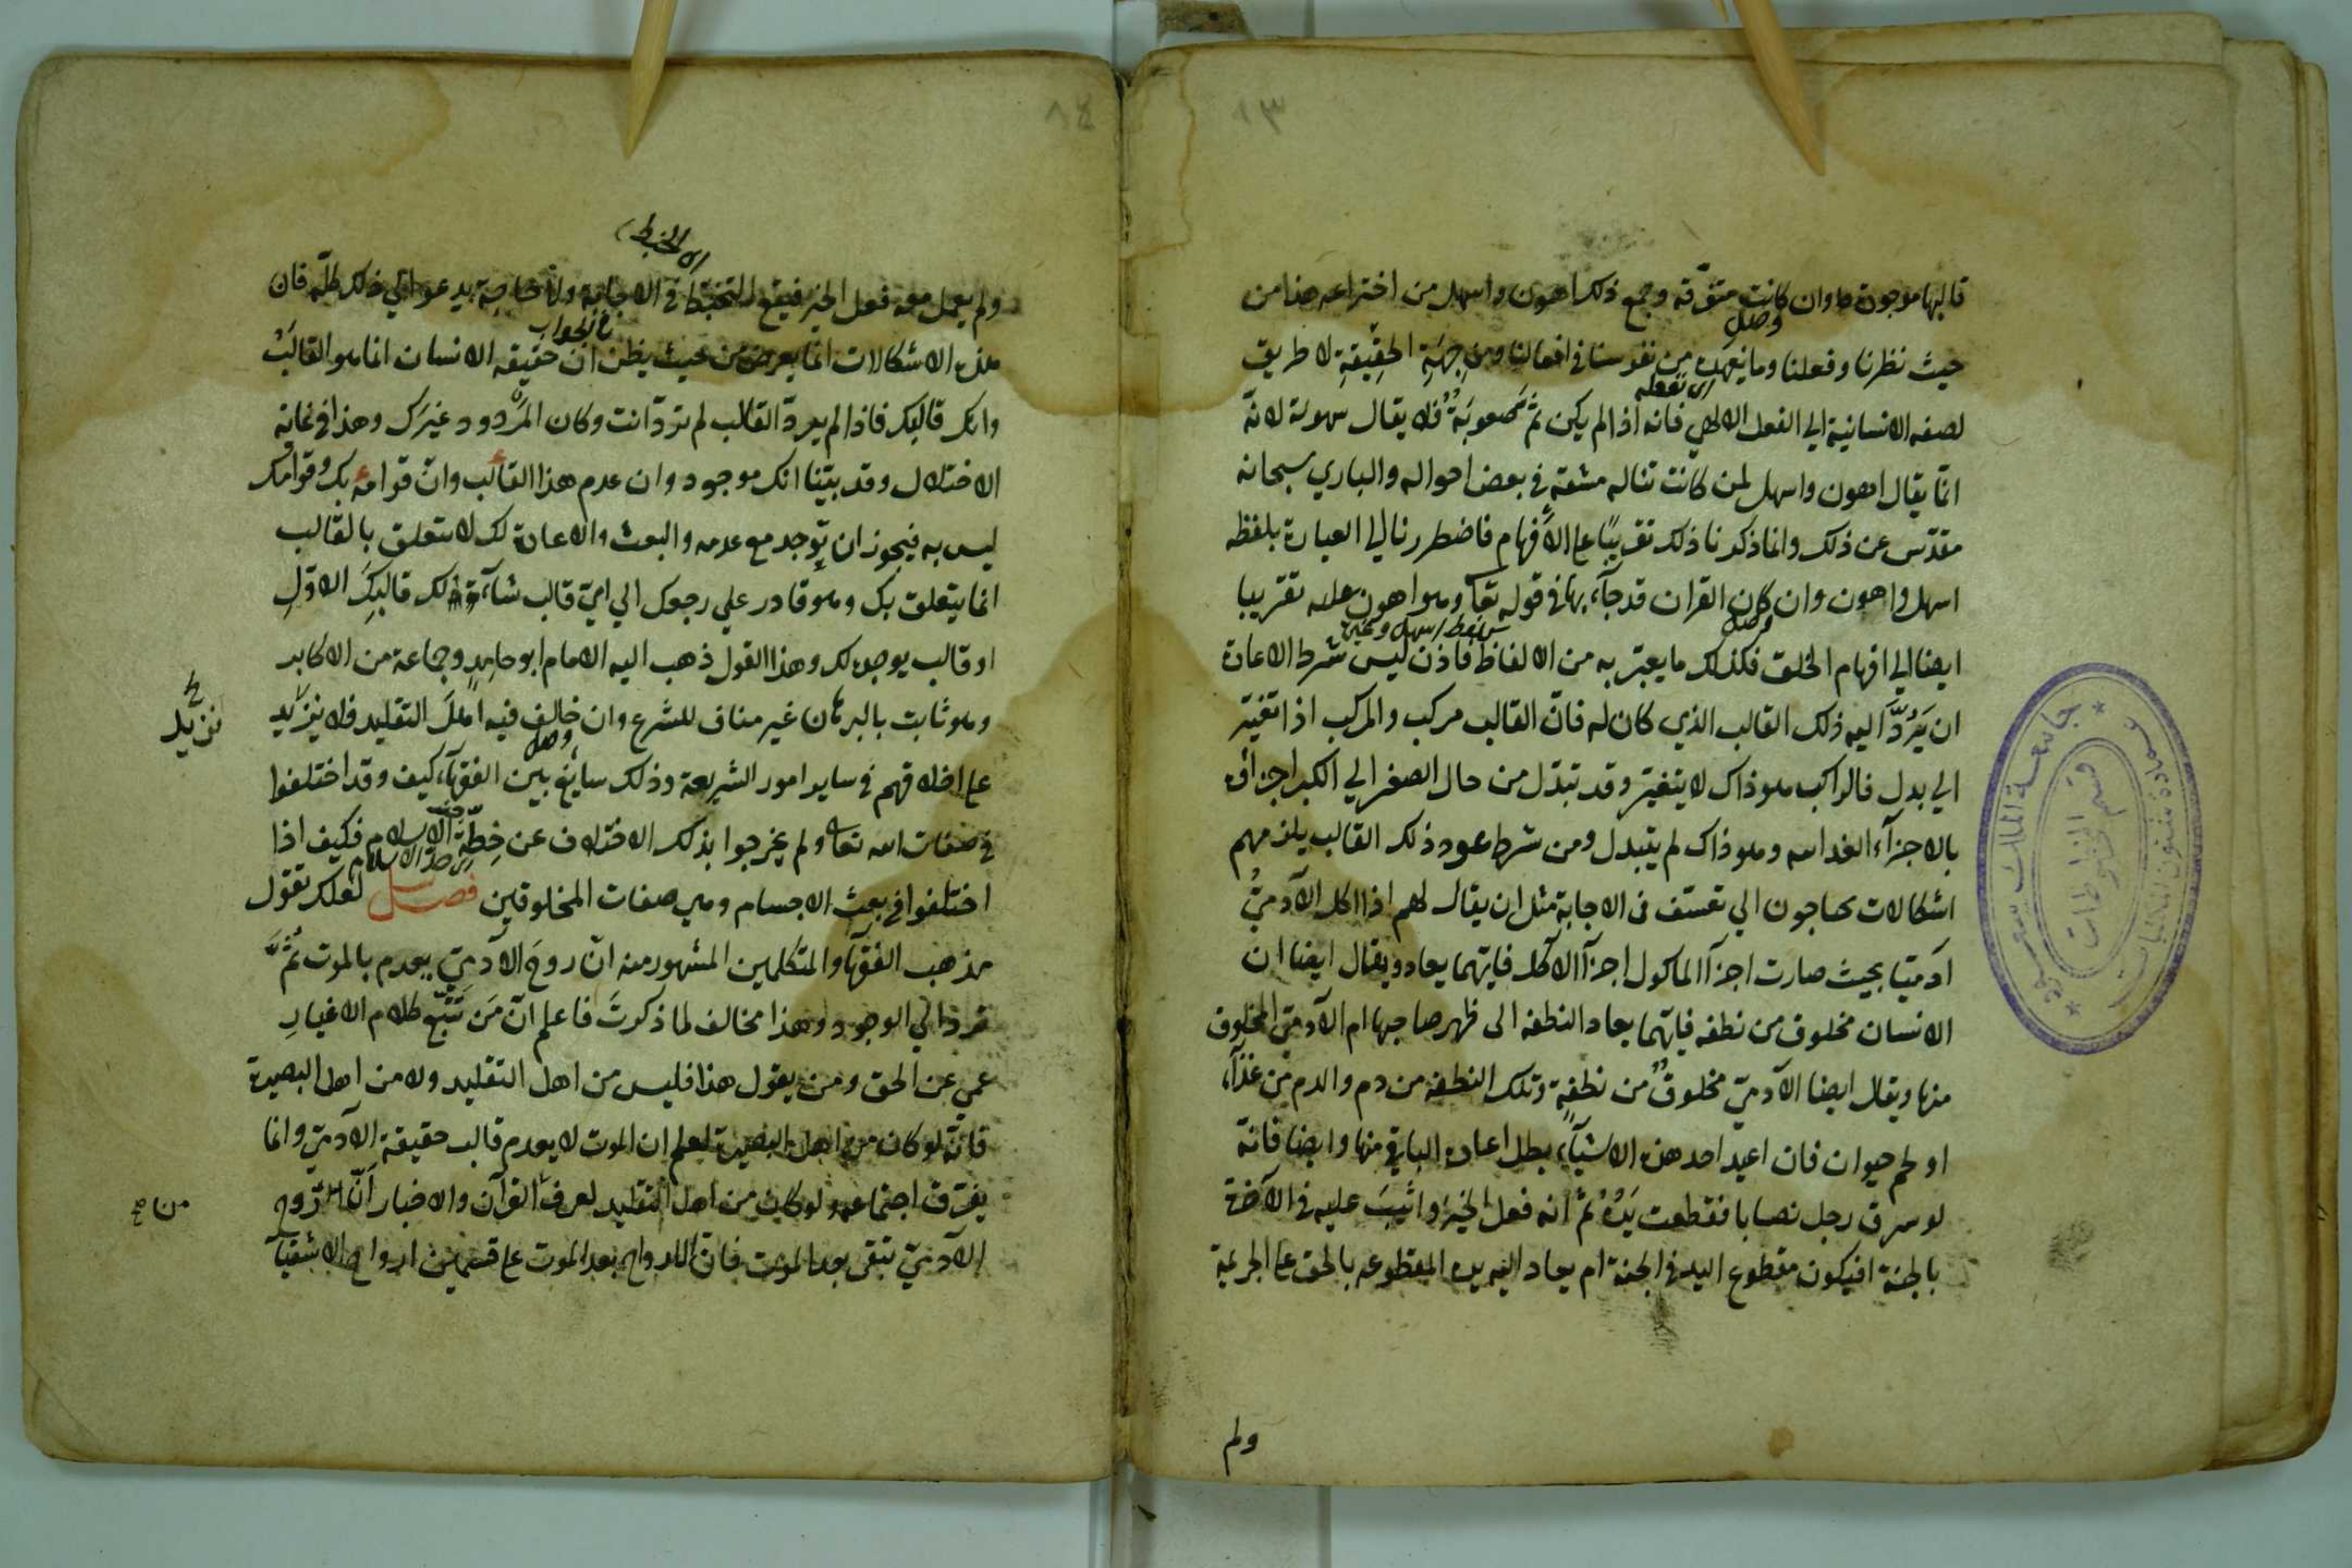 ١٣
قالبها موجودة وان كانت متفرقة وجمع ذلك اهون واسهل من اختراعه هذا من
حيث نظرنا وفعلنا وما نعهده من نفوسنا في افعالنا ومن جهة الحقيقة لا طريق
لصفه الانسانية الي الفعل الالهي فانه اذا لم يكن ثم صعوبة فلا يقال سهولة لانه
انما يقال اهون واسهل لمن كانت تناله مشقة في بعض احواله والباري سبحانه
مقدس عن ذلك وانما ذكرنا ذلك تقريبا علي الافهام فاضطررنا الي العبارة بلفظه
اسهل واهون وان كان القران قد جآء بها في قوله تعا وهو اهون عليه تقريبا
ايضا الي افهام الخلق فكذلك ما يعبر به من الالفاظ فاذن ليس شرط الاعادة
ان يرد اليه ذلك القالب الذي كان له فان القالب مركب والمركب اذا تغير
الي بدل فالراكب هو ذاك لا يتغير وقد تبدل من حال الصغر الي الكبر اجزاؤه
بالاجزآء الغدائيه وهو ذاك لم يتبدل ومن شرط عود ذلك القالب يلزمهم
اشكالات يحتاجون الي تعسف في الاجابة مثل ان يقال لهم اذا اكل الآدمي
ادميا بحيث صارت اجزآ الماكول اجزآ الآكل فايهما يعاد ويقال ايضا ان
الانسان مخلوق من نطفه فايهما يعاد النطفه الى ظهر صاحبها ام الآدمي المخلوق
منها ويقال ايضا الآدمي مخلوق من نطفة وتلك النطفة من دم والدم من غذآء
او لحم حيوان فان اعيد احد هذه الاشيآء بطل اعادة الباقي منها وايضا فانه
لو سرق رجل نصابا فقطعت يده ثم انه فعل الخير واثيب عليه في الآخرة
بالجنة افيكون مقطوع اليد في الجنة ام يعاد اليه يده المقطوعه بالحق علي الجريمة
ولم
جامعة الملك سعود
١٤
اي الخبط
ولم يعمل معه فعل الخير فيقع التخبط في الاجابة ولا حاجة يدعو الي ذلك كله فان
في الجواب
هذه الاشكالات انما يعرض من حيث يظن ان حقيقه الانسان انما هو القالب
وانك قالبك فاذا لم يعد القالب لم ترد انت وكان المردود غيرك وهذا في غاية
الاختلال وقد بينا انك موجود وان عدم هذا القالب وان قوامه بك وقوامك
ليس به فيجوز ان توجد مع عدمه والبعث والاعادة لك لا يتعلق بالقالب
انما يتعلق بك وهو قادر علي رجوعك الي اي قالب شآء كذلك قالبك الاول
او قالب يوجده لك وهذا القول ذهب اليه الامام ابو حامد وجماعة من الاكابر
وهو ثابت بالبرهان غير مناف للشرع وان خالف فيه اهل التقليد فلا يزيد
علي اختلافهم في ساير امور الشريعة وذلك سايغ بين الفقهآء كيف وقد اختلفوا
في صفات الله تعا ولم يخرجوا بذلك الاختلاف عن خطة الاسلام فكيف اذا
اختلفوا في بعث الاجسام وهي صفات المخلوقين فصل لعلك تقول
مذهب الفقهآ والمتكلمين المشهور منه ان روح الآدمي يعدم بالموت ثم
ترد الي الوجود وهذا مخالف لما ذكرت فاعلم ان من تتبع كلام الاغيار
عمي عن الحق ومن يقول هذا فليس من اهل التقليد ولا من اهل البصيرة
فانه لو كان من اهل البصيرة لعلم ان الموت لا يعدم قالب حقيقة الآدمي وانما
يفرق اجتماعه ولو كان من اهل التقليد لعرف القرآن والاخبار ان الروح
الآدمي تبقى بعد الموت فان الارواح بعد الموت علي قسمين ارواح الاشقيآ